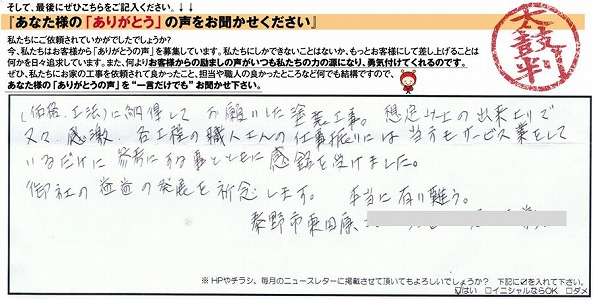 そして、最後にぜひこちらをご記入ください。↓↓
『あなた様の「ありがとう」の声をお聞かせください』
私たちにご依頼されていかがでしたでしょうか?
今、私たちはお客様から「ありがとうの声」を募集しています。私たちにしかできないことはないか、もっとお客様にして差し上げることは
何かを日々追求しています。また、何よりお客様からの励ましの声がいつも私たちの力の源になり、勇気付けてくれるのです。
ぜひ、私たちにお家の工事を依頼されて良かったこと、担当や職人の良かったところなど何でも結構ですので、
あなた様の「ありがとうの声」を“一言だけでも”お聞かせ下さい。
太鼓判
(価格、工法)に納得して お願いした塗装工事。 想定以上の出来上りで
又々、感激、各工程の職人さんの仕事振りには当方もサービス業をして
いるだけに 参考にする事とともに感銘を受けました。
御社の益々の発展を祈念します。 本当に有り難う。
秦野市東田原
※HPやチラシ、毎月のニュースレターに掲載させて頂いてもよろしいでしょうか? 下記に☑を入れて下さい。
☑はい □イニシャルならOK □ダメ